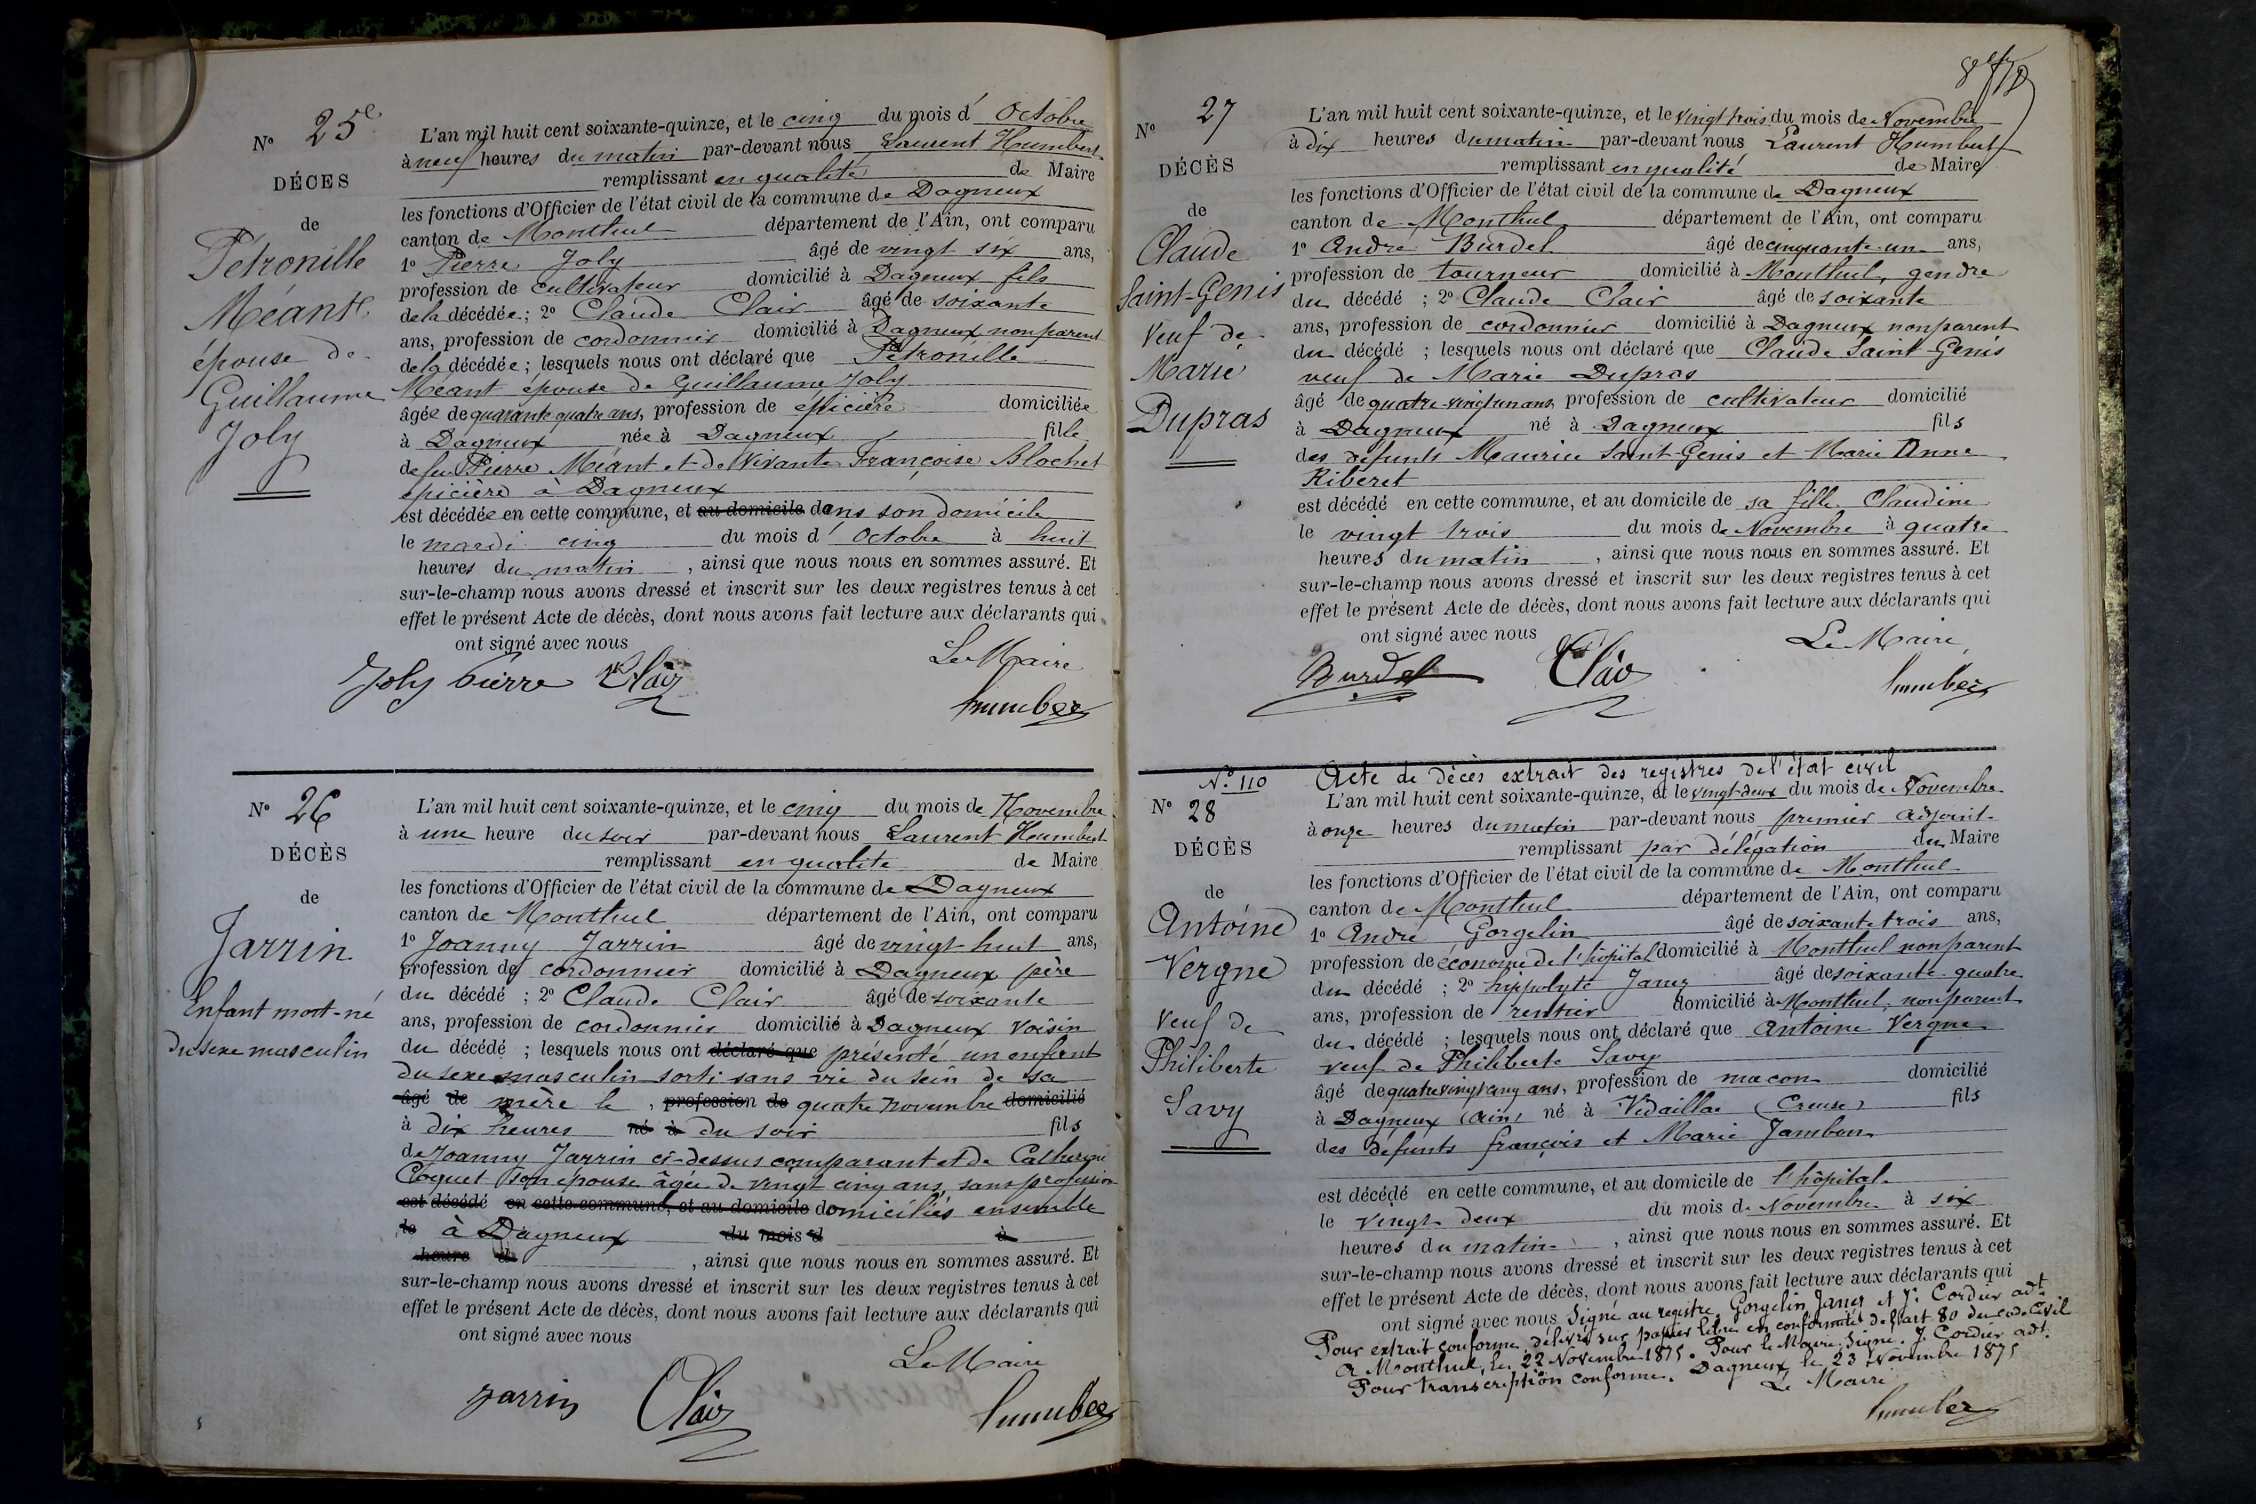 N° 25e
DÉCES
de
Pétronille
Méant
épouse de
Guillaume
Joly
L'an mil huit cent soixante-quinze, et le cinq du mois d'Octobre
à neuf heures du matin par-devant nous Laurent Humbert
remplissant en qualité de Maire
les fonctions d'Officier de l'état civil de la commune de Dagneux
canton de Montluel département de l'Ain, ont comparu
1° Pierre Joly âgé de vingt six ans,
profession de cultivateur domicilié à Dagneux fils
de la décédée ; 2° Claude Clair âgé de soixante
ans, profession de cordonnier domicilié à Dagneux non parent
de la décédée ; lesquels nous ont déclaré que Pétronille
Méant épouse de Guillaume Joly
âgée de quarante quatre ans, profession de épicière domiciliée
à Dagneux née à Dagneux fille
de feu Pierre Méant et de Vivante Françoise Blochet
épicière à Dagneux
est décédée en cette commune, et au domicile dans son domicile
le mardi cinq du mois d'Octobre à huit
heures du matin, ainsi que nous nous en sommes assuré. Et
sur-le-champ nous avons dressé et inscrit sur les deux registres tenus à cet
effet le présent Acte de décès, dont nous avons fait lecture aux déclarants qui
ont signé avec nous
Le Maire
Joly Pierre Clair Humbert
N° 26
DÉCÈS
de
Jarrin
Enfant mort-né
du sexe masculin
L'an mil huit cent soixante-quinze, et le cinq du mois de Novembre
à une heure du soir par-devant nous Laurent Humbert
remplissant en qualité de Maire
les fonctions d'Officier de l'état civil de la commune de Dagneux
canton de Montluel département de l'Ain, ont comparu
1° Joanny Jarrin âgé de vingt huit ans,
profession de cordonnier domicilié à Dagneux père
du décédé ; 2° Claude Clair âgé de soixante
ans, profession de cordonnier domicilié à Dagneux voisin
du décédé ; lesquels nous ont déclaré que présenté un enfant
du sexe masculin sorti sans vie du sein de sa
âgé de mère le , profession de quatre novembre domicilié
à dix heures né à du soir fils
de Joanny Jarrin ci-dessus comparant et de Catherine
Coquet son épouse âgée de vingt cinq ans, sans profession
est décédé en cette commune, et au domicile domiciliés ensemble
le à Dagneux du mois d à
heure d , ainsi que nous nous en sommes assuré. Et
sur-le-champ nous avons dressé et inscrit sur les deux registres tenus à cet
effet le présent Acte de décès, dont nous avons fait lecture aux déclarants qui
ont signé avec nous
Le Maire
Jarrin Clair Humbert
N° 27
DÉCÈS
de
Claude
Saint-Genis
Veuf de
Marie
Dupras
L'an mil huit cent soixante-quinze, et le vingt trois du mois de Novembre
à dix heures du matin par-devant nous Laurent Humbert
remplissant en qualité de Maire
les fonctions d'Officier de l'état civil de la commune de Dagneux
canton de Montluel département de l'Ain, ont comparu
1° André Burdel âgé de cinquante un ans,
profession de tourneur domicilié à Montluel, gendre
du décédé ; 2° Claude Clair âgé de soixante
ans, profession de cordonnier domicilié à Dagneux non parent
du décédé ; lesquels nous ont déclaré que Claude Saint-Genis
veuf de Marie Dupras
âgé de quatre-vingt un ans profession de cultivateur domicilié
à Dagneux né à Dagneux fils
des défunts Maurice Saint-Genis et Marie Anne
Riberet
est décédé en cette commune, et au domicile de sa fille Claudine
le vingt trois du mois de Novembre à quatre
heures du matin, ainsi que nous nous en sommes assuré. Et
sur-le-champ nous avons dressé et inscrit sur les deux registres tenus à cet
effet le présent Acte de décès, dont nous avons fait lecture aux déclarants qui
ont signé avec nous
Le Maire,
Burdel Clair Humbert
N° 110 Acte de décès extrait des registres de l'état civil
N° 28
DÉCÈS
de
Antoine
Vergne
Veuf de
Philiberte
Savy
L'an mil huit cent soixante-quinze, et le vingt-deux du mois de Novembre
à onze heures du matin par-devant nous premier adjoint
remplissant par délégation du Maire
les fonctions d'Officier de l'état civil de la commune de Montluel
canton de Montluel département de l'Ain, ont comparu
1° André Gorgelin âgé de soixante trois ans,
profession de économe de l'hôpital domicilié à Montluel non parent
du décédé ; 2° hippolyte Janer âgé de soixante quatre
ans, profession de rentier domicilié à Montluel, non parent
du décédé ; lesquels nous ont déclaré que Antoine Vergne
veuf de Philiberte Savy
âgé de quatre vingt cinq ans, profession de maçon domicilié
à Dagneux (Ain) né à Vidaillac (Creuse) fils
des défunts françois et Marie Jambon
est décédé en cette commune, et au domicile de l'hôpital
le vingt deux du mois de Novembre à six
heures du matin, ainsi que nous nous en sommes assuré. Et
sur-le-champ nous avons dressé et inscrit sur les deux registres tenus à cet
effet le présent Acte de décès, dont nous avons fait lecture aux déclarants qui
ont signé avec nous Signé au registre Gorgelin Janer et J. Cordier adt.
Pour extrait conforme, délivré sur papier libre en conformité de l'art 80 du code Civil
A Montluel, le 22 Novembre 1875. Pour le Maire, Signé. J. Cordier adt.
Pour transcription conforme. Dagneux le 23 Novembre 1875
Le Maire
Humbert